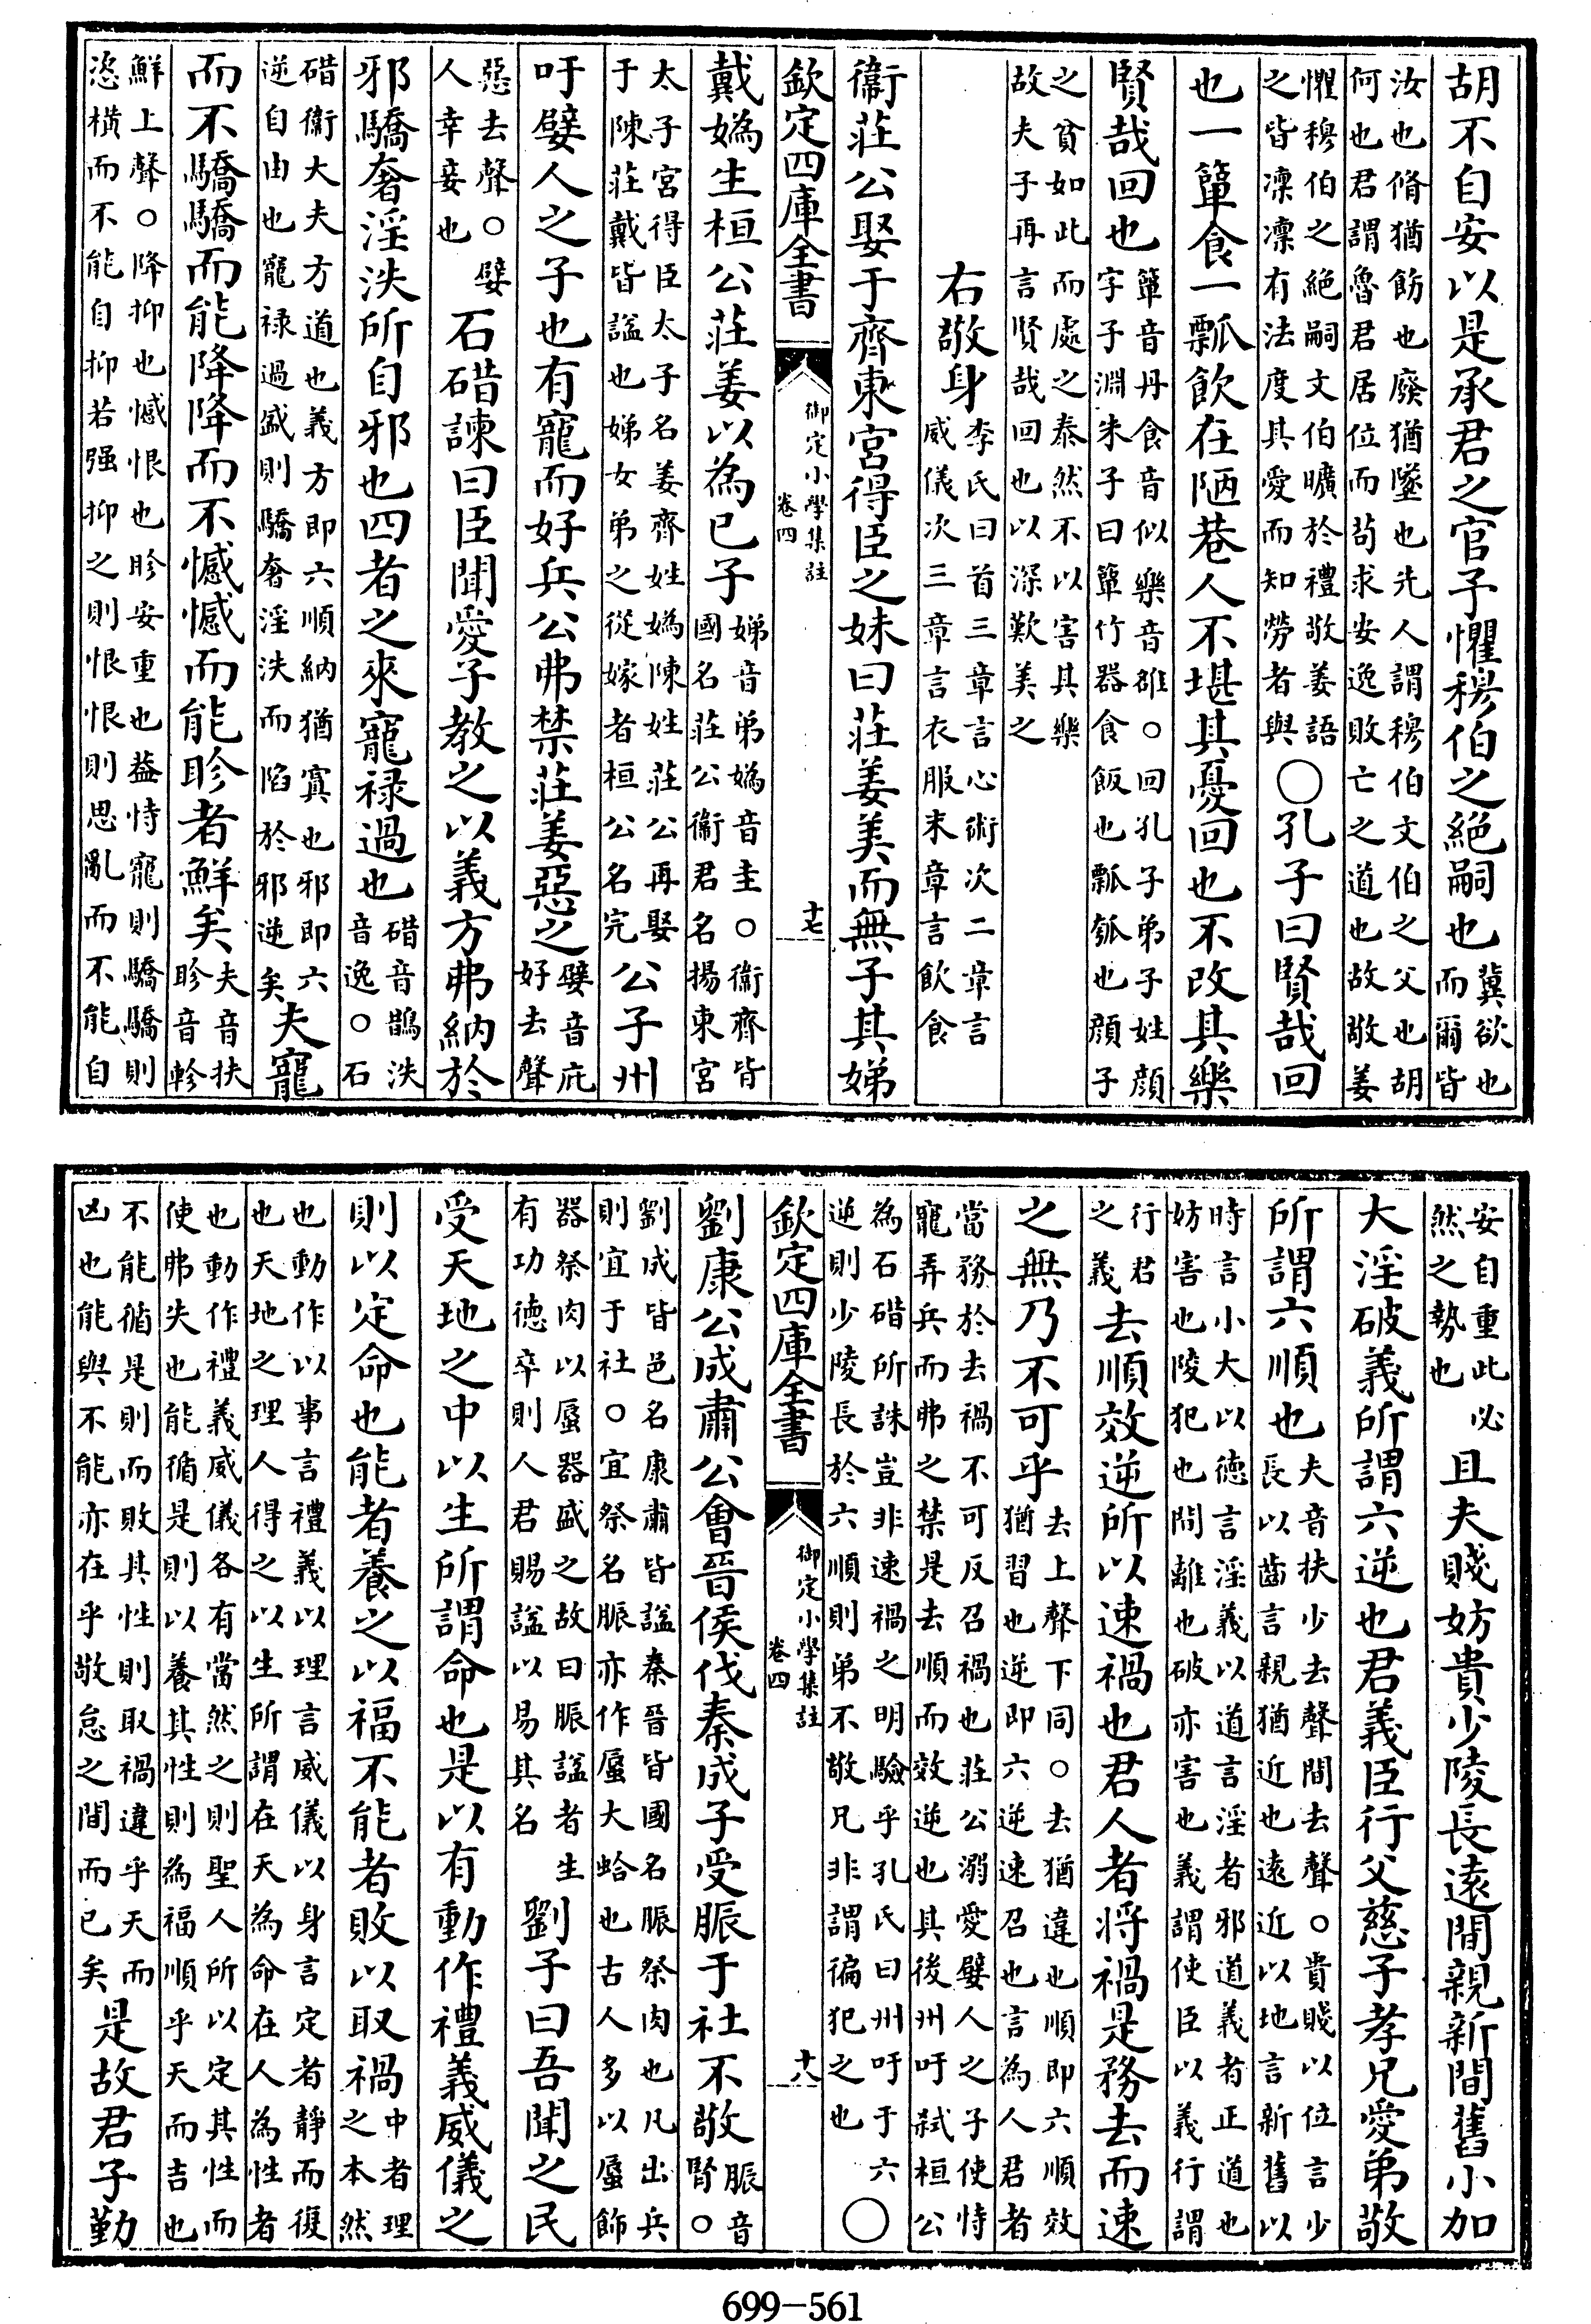 胡不自安以是承君之官予懼穆伯之絕嗣也冀欲也而爾皆
汝也脩猶飭也廢猶墜也先人謂穆伯文伯之父也胡何也君謂魯君居位而苟求安逸敗亡之道也故敬姜
懼穆伯之絕嗣文伯曠於禮敬姜語之皆凜凜有法度其愛而知勞者與○孔子曰賢哉回
也一簞食一瓢飲在陋巷人不堪其憂回也不改其樂
賢哉回也簞音丹食音似樂音雒○回孔子弟子姓顔字子淵朱子曰簞竹器食飯也瓢瓠也顔子
之貧如此而處之泰然不以害其樂故夫子再言賢哉回也以深歎美之
右敬身李氏曰首三章言心術次二章言威儀次三章言衣服末章言飲食
衞莊公娶于齊東宮得臣之妹曰莊姜美而無子其娣
欽定四庫全書 御定小學集註 卷四 十七
戴嬀生桓公莊姜以為己子娣音弟嬀音圭○衞齊皆國名莊公衞君名揚東宮
太子宮得臣太子名姜齊姓嬀陳姓莊公再娶于陳莊戴皆諡也娣女弟之從嫁者桓公名完公子州
吁嬖人之子也有寵而好兵公弗禁莊姜惡之嬖音庇好去聲
惡去聲○嬖人幸妾也石碏諫曰臣聞愛子教之以義方弗納於
邪驕奢淫泆所自邪也四者之來寵祿過也碏音鵲泆音逸○石
碏衞大夫方道也義方即六順納猶寘也邪即六逆自由也寵祿過盛則驕奢淫泆而陷於邪逆矣夫寵
而不驕驕而能降降而不憾憾而能眕者鮮矣夫音扶眕音軫
鮮上聲○降抑也憾恨也眕安重也葢恃寵則驕驕則恣橫而不能自抑若强抑之則恨恨則思亂而不能自
安自重此必然之勢也且夫賤妨貴少陵長遠間親新間舊小加
大淫破義所謂六逆也君義臣行父慈子孝兄愛弟敬
所謂六順也夫音扶少去聲間去聲○貴賤以位言少長以齒言親猶近也遠近以地言新舊以
時言小大以德言淫義以道言淫者邪道義者正道也妨害也陵犯也間離也破亦害也義謂使臣以義行謂
行君之義去順效逆所以速禍也君人者將禍是務去而速
之無乃不可乎去上聲下同○去猶違也順即六順效猶習也逆即六逆速召也言為人君者
當務於去禍不可反召禍也莊公溺愛嬖人之子使恃寵弄兵而弗之禁是去順而效逆也其後州吁弑桓公
為石碏所誅豈非速禍之明驗乎孔氏曰州吁于六逆則少陵長於六順則弟不敬凡非謂徧犯之也○
欽定四庫全書 御定小學集註 卷四 十八
劉康公成肅公會晉侯伐秦成子受脤于社不敬脤音腎○
劉成皆邑名康肅皆諡秦晉皆國名脤祭肉也凡出兵則宜于社○宜祭名脤亦作蜃大蛤也古人多以蜃飾
器祭肉以蜃器盛之故曰脤諡者生有功德卒則人君賜諡以易其名劉子曰吾聞之民
受天地之中以生所謂命也是以有動作禮義威儀之
則以定命也能者養之以福不能者敗以取禍中者理之本然
也動作以事言禮義以理言威儀以身言定者靜而復也天地之理人得之以生所謂在天為命在人為性者
也動作禮義威儀各有當然之則聖人所以定其性而使弗失也能循是則以養其性則為福順乎天而吉也
不能循是則而敗其性則取禍違乎天而凶也能與不能亦在乎敬怠之間而已矣是故君子勤
699-561